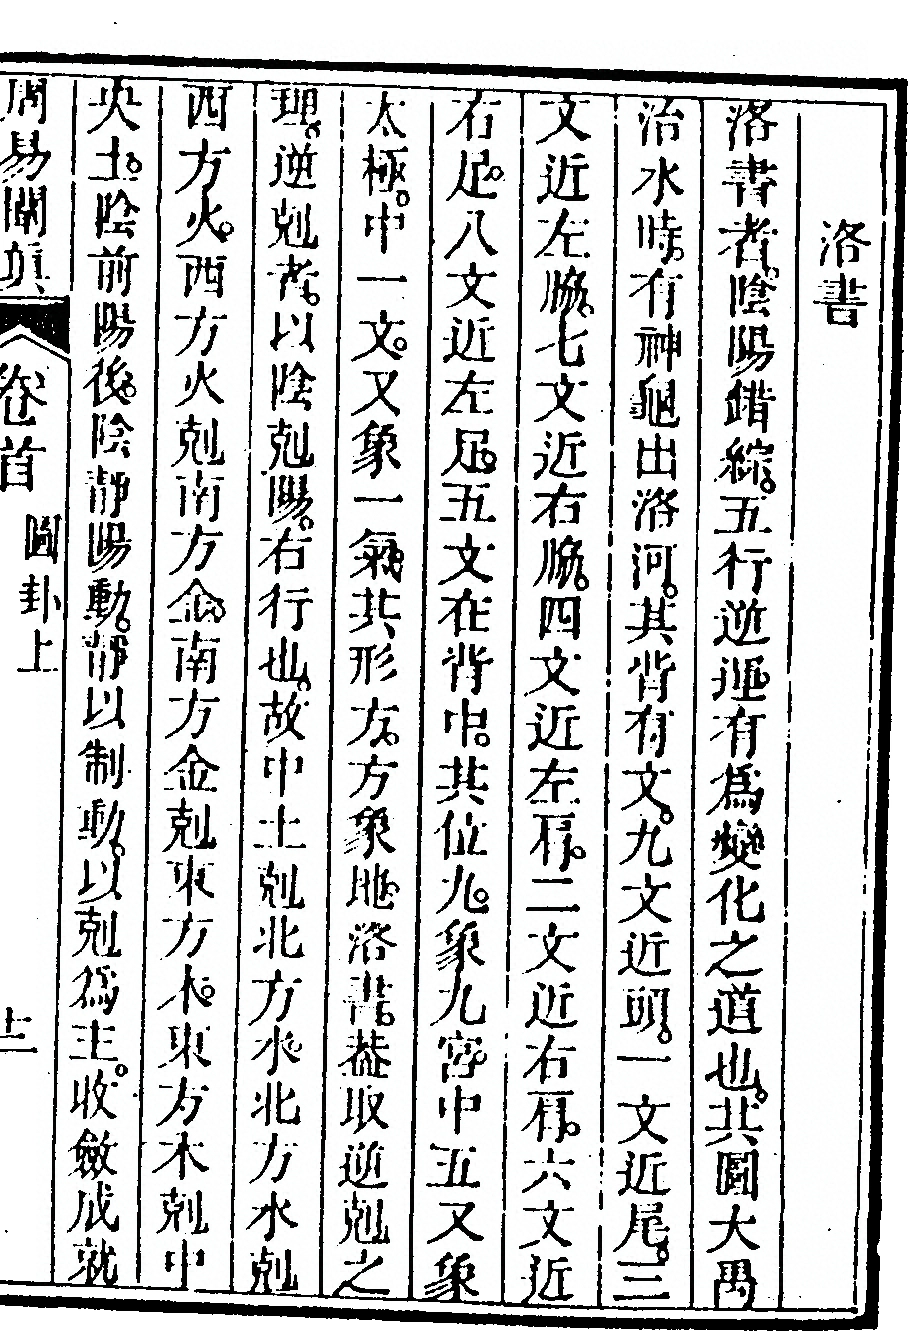 洛書
洛書者。陰陽錯綜。五行逆運。有為變化之道也。其圖大禹
治水時。有神龜出洛河。其背有文。九文近頭。一文近尾。三
文近左脇。七文近右脇。四文近左肩。二文近右肩。六文近
右足。八文近左足。五文在背中。其位九。象九宮。中五又象
太極。中一文。又象一氣。其形方。方象地。洛書。葢取逆剋之
理。逆剋者。以陰剋陽。右行也。故中土剋北方水。北方水剋
西方火。西方火剋南方金。南方金剋東方木。東方木剋中
央土。陰前陽後。陰靜陽動。靜以制動。以剋為主。收斂成就
周易闡真 卷首 圖卦上 十二